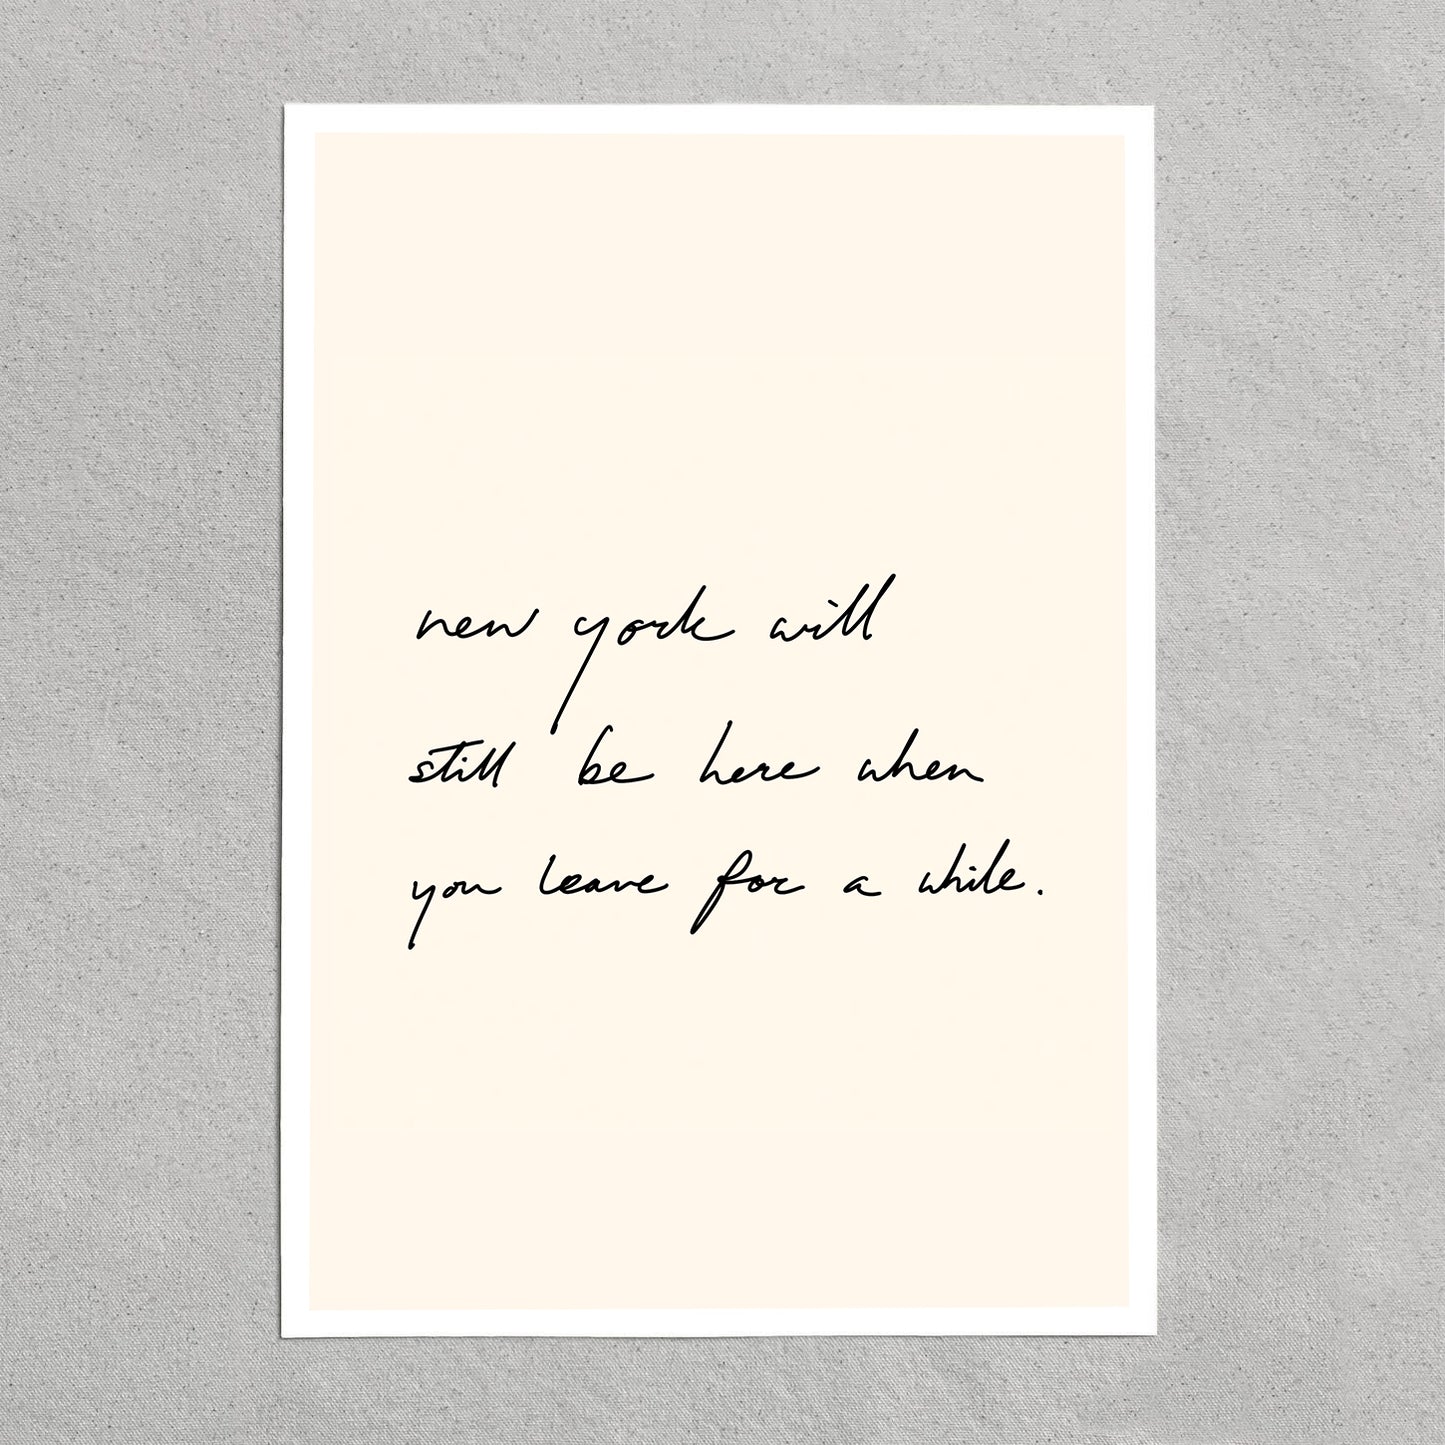 new york will
still be here when
you leave for a while.